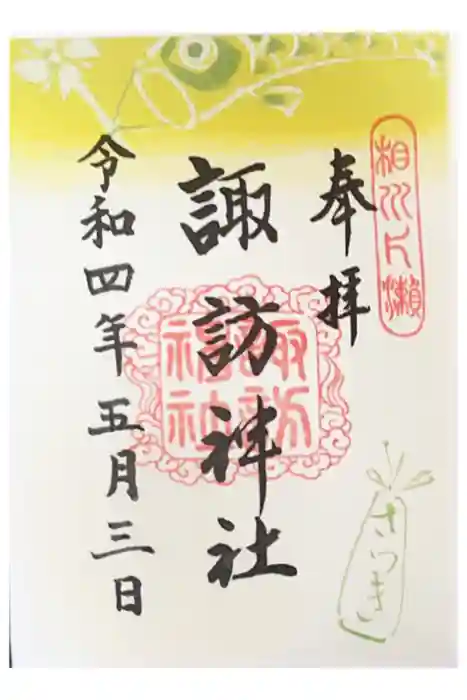 相州片瀬
奉拝
諏訪神社
諏訪
神社
令和四年五月三日
さつき